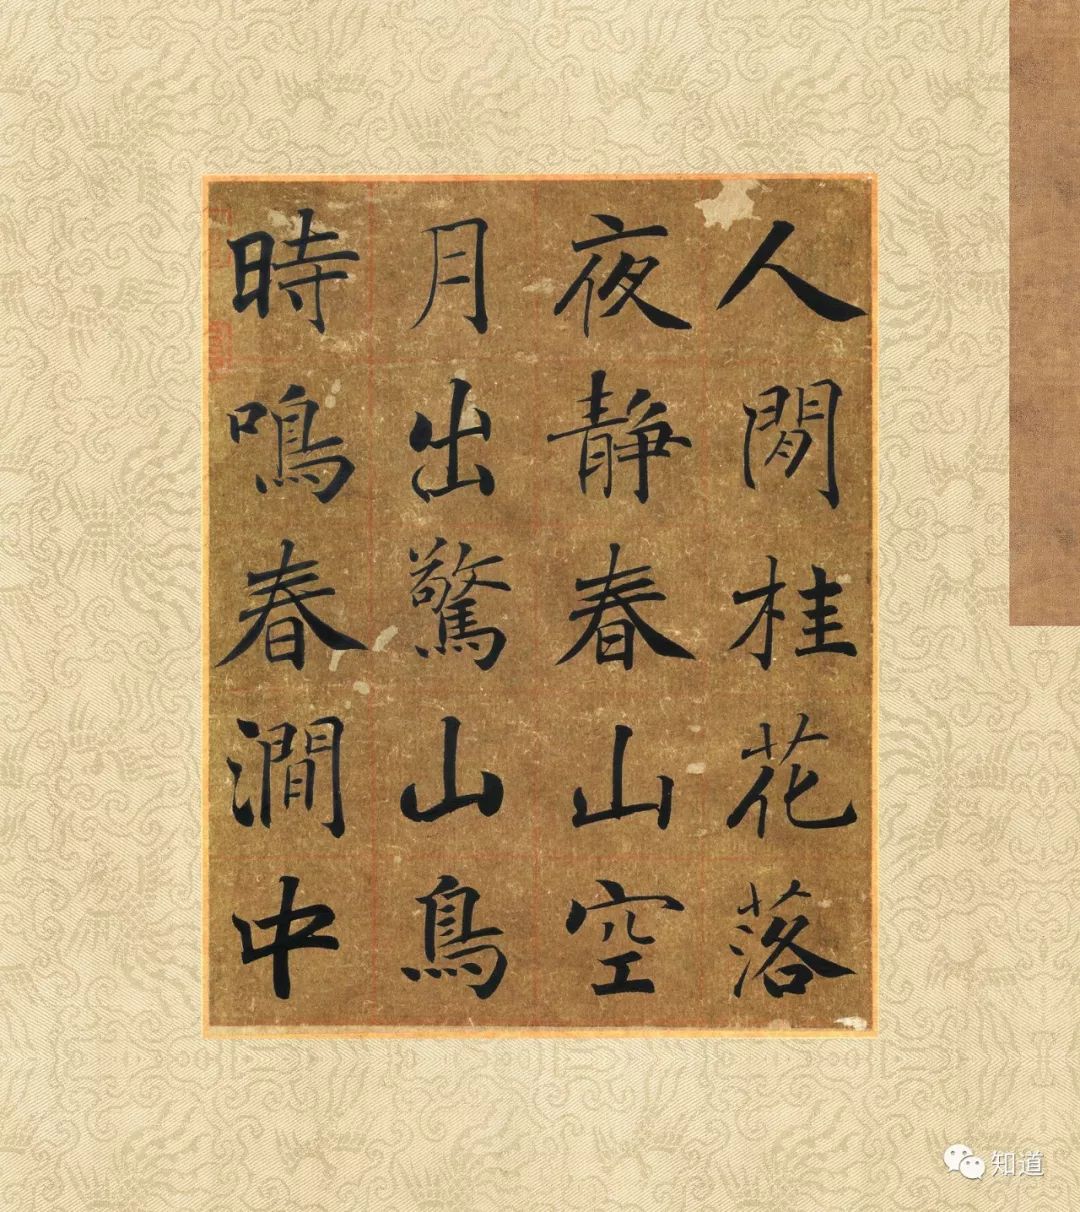 人閒桂花落
夜静春山空
月出驚山鳥
時鳴春澗中
知道